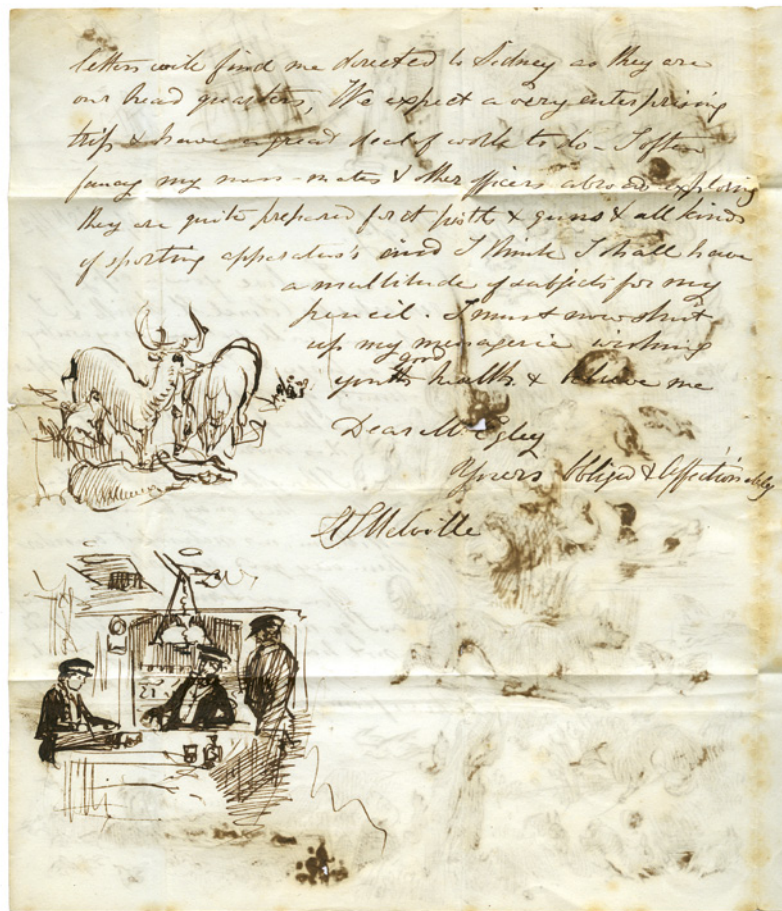 letters will find me directed to Sidney as they are
our head quarters, We expect a very enterprising
trip & have a great deal of work to do - I often
fancy my mess-mates & other officers abroad exploring
they are quite prepared for it with & guns & all kinds
of sporting apparatus's and I think I shall have
a multitude of subjects for my
pencil. I must now shut
up my menagerie wishing
good
health & believe me
Dear Mr Egley
Yours Obliged & Affectionately
H S Melville